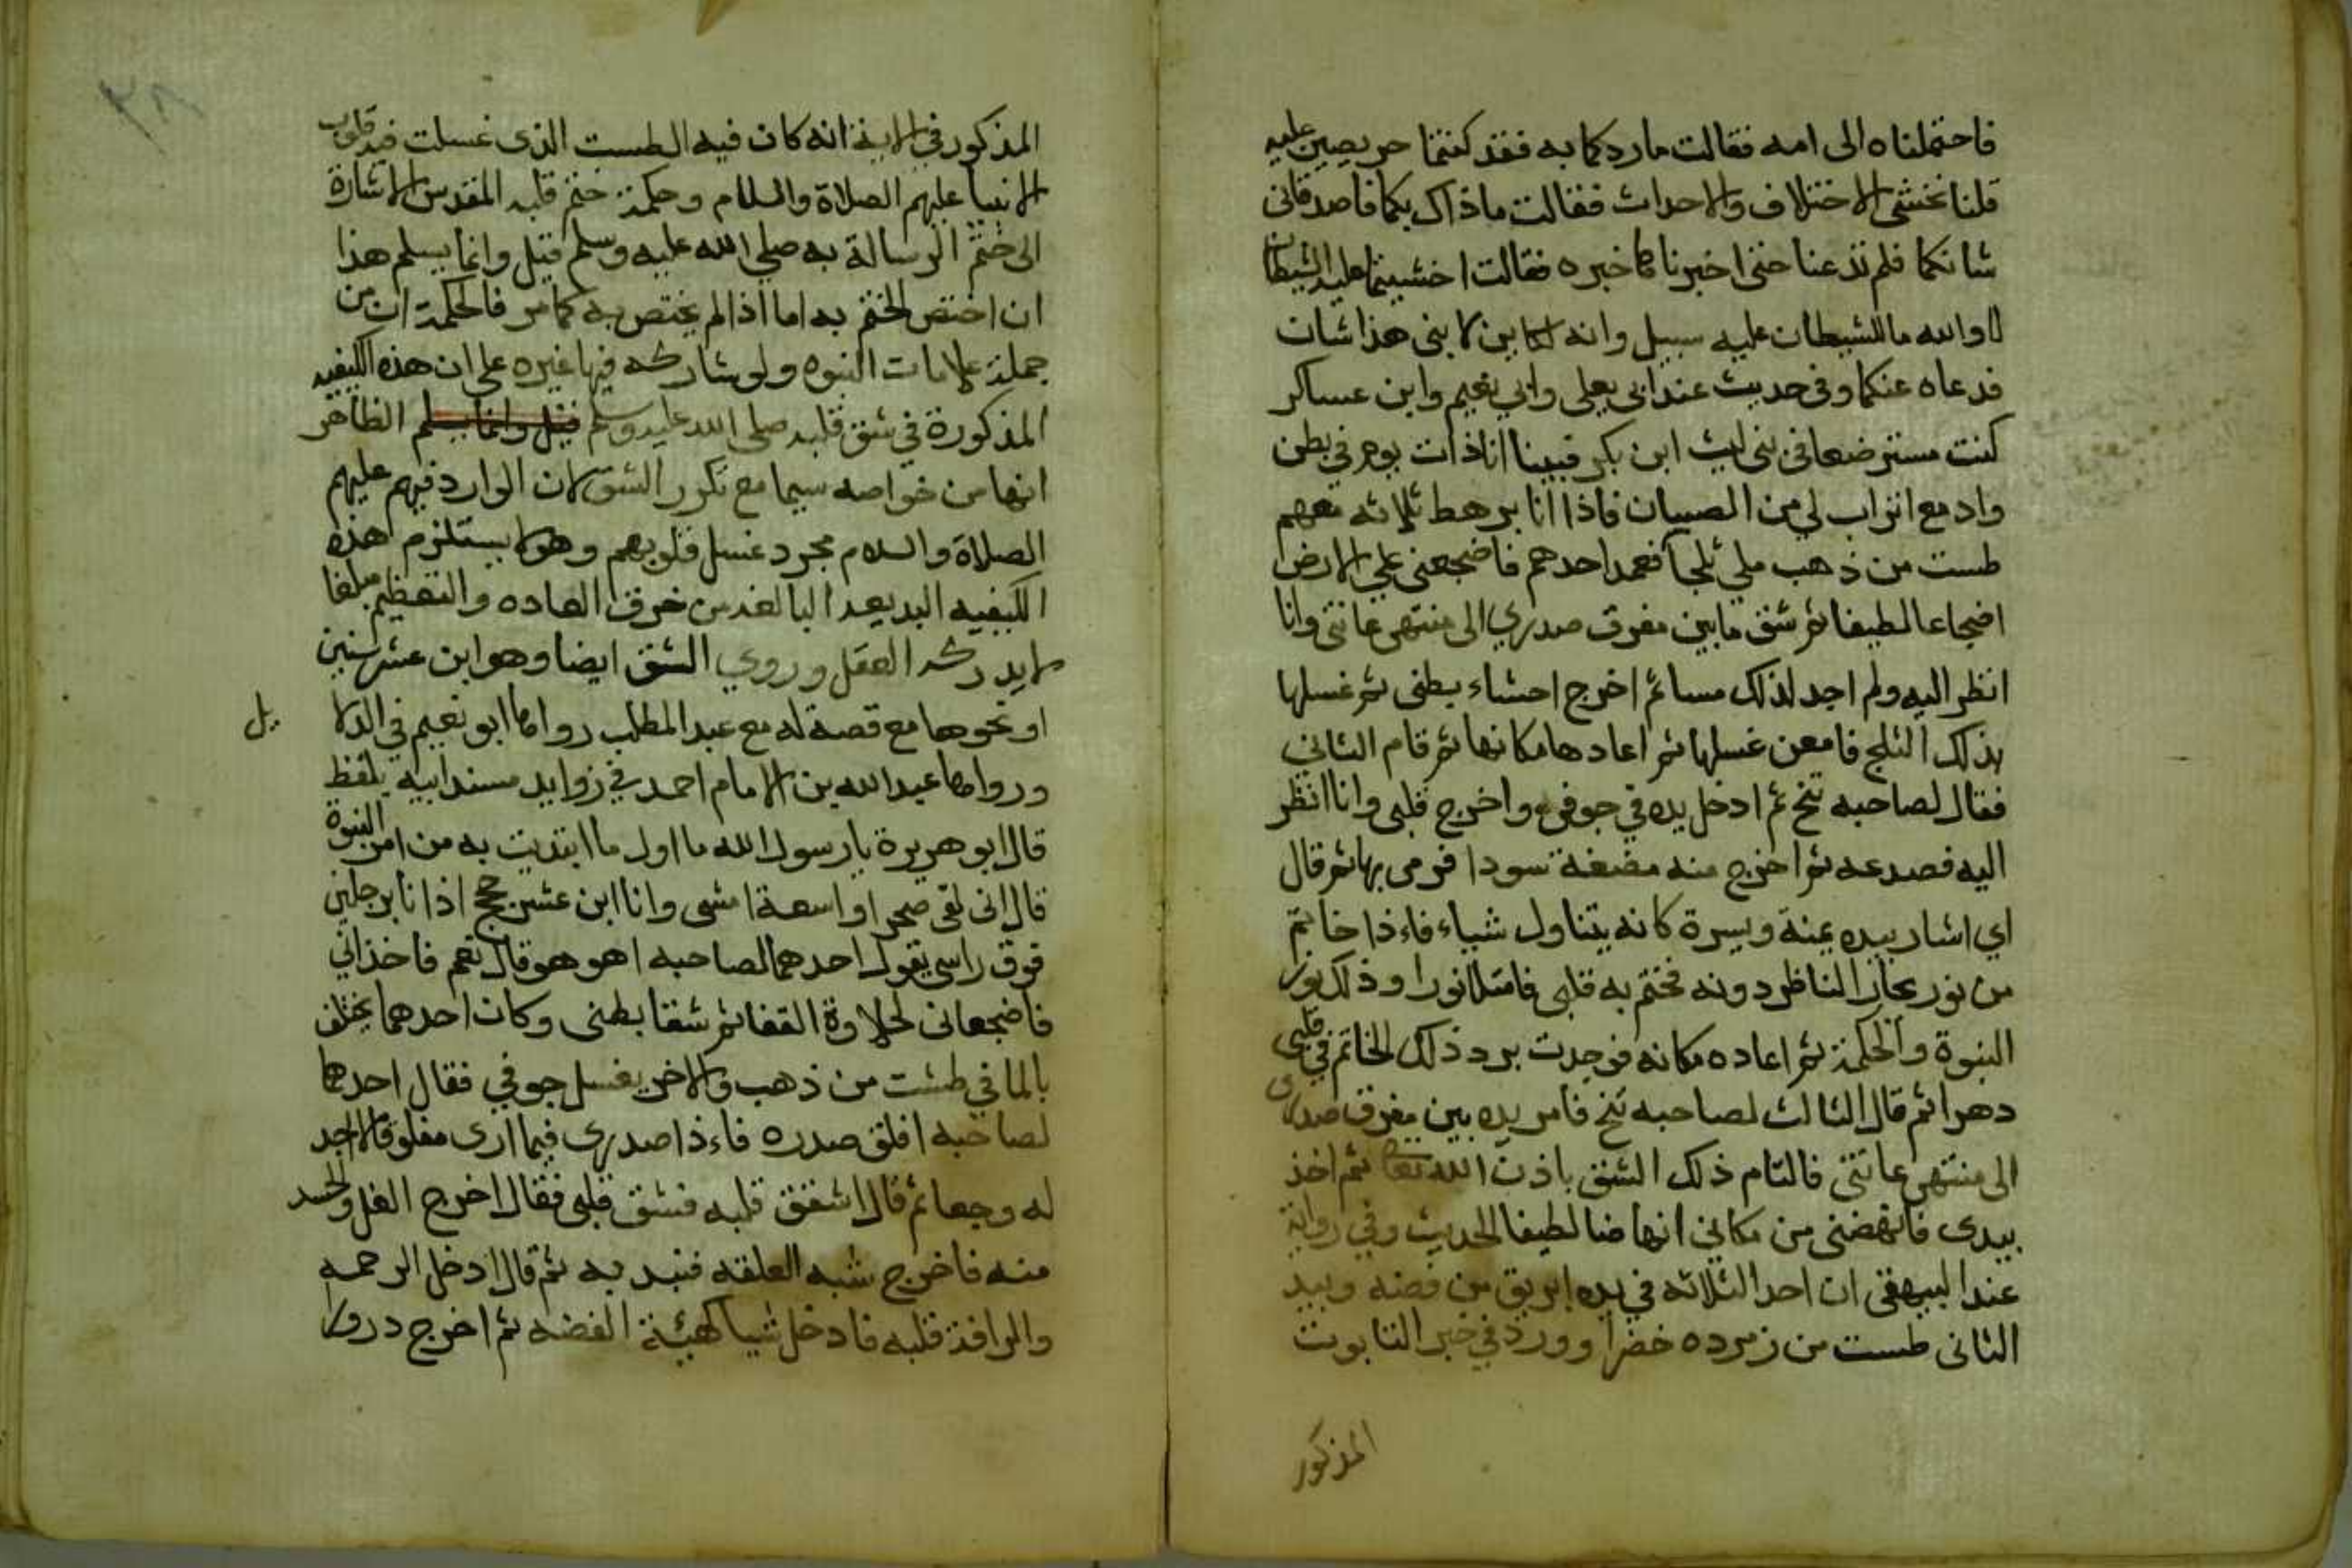 فاحتملناه الى امه فقالت ما ردكما به فقد كنتما حريصين عليه
قلنا نخشى الاختلاف والاحداث فقالت ماذاك بكما فاصدقانى
شانكما فلم تدعنا حتى اخبرناها خبره فقالت اخشيتما عليه الشيطان
لا والله ما للشيطان عليه سبيل وانه لكاين لابنى هذا شان
فدعاه عنكما وفى حديث عند ابى يعلى وابي نعيم وابن عساكر
كنت مسترضعا فى بنى ليث ابن بكر فبينا انا ذات يوم في بطن
واد مع اتراب لي من الصبيان فاذا انا برهط ثلاثه معهم
طست من ذهب ملي ثلجا فعمد احدهم فاضجعنى علي الارض
اضجاعا لطيفا ثم شق ما بين مفرق صدري الى منتهى عانتى وانا
انظر اليه ولم اجد لذلك مسا ثم اخرج احشاء بطنى ثم غسلها
بذلك الثلج فامعن غسلها ثم اعادها مكانها ثم قام الثاني
فقال لصاحبه تنح ثم ادخل يده في جوفي واخرج قلبى وانا انظر
اليه فصدعه ثم اخرج منه مضغة سودا فرمى بها ثم قال
اي اشار بيده يمنة ويسرة كانه يتناول شياء فاءذا خاتم
من نور يحار الناظر دونه فختم به قلبى فامتلا نورا وذلك نور
النبوة والحكمة ثم اعاده مكانه فوجدت برد ذلك الخاتم في قلبى
دهرا ثم قال الثالث لصاحبه تنح فامر يده بين مفرق صدرى
الى منتهى عانتى فالتام ذلك الشق باذن الله تعالى ثم اخذ
بيدى فانهضنى من مكاني انهاضا لطيفا الحديث وفي رواية
عند البيهقى ان احد الثلاثه في يده ابريق من فضه وبيد
الثانى طست من زمرده خضرا وورد في خبر التابوت
المذكور
٣٨
المذكور في الاية انه كان فيه الطست الذى غسلت فيه قلوب
الانبيا عليهم الصلاة والسلام وحكمة ختم قلبه المقدس الاشارة
الى ختم الرسالة به صلي الله عليه وسلم قيل وانما يسلم هذا
ان اختص الختم به اما اذا لم يختص به كما مر فالحكمة ان من
جملة علامات النبوه ولو شاركه فيها غيره على ان هذه الكيفيه
المذكورة في شق قلبه صلى الله عليه وسلم قيل وانما يسلم الظاهر
انها من خواصه سيما مع تكرر الشق لان الوارد فيهم عليهم
الصلاة والسلام مجرد غسل قلوبهم وهو لا يستلزم هذه
الكيفيه البديعه البالغه من خرق العاده والتعظيم مبلغا
لا يدركه العقل وروي الشق ايضا وهو ابن عشر سنين
او نحوها مع قصة له مع عبد المطلب رواها ابو نعيم في الدلا
يل
ورواها عبد الله بن الامام احمد في زوايد مسند ابيه بلفظ
قال ابو هريرة يا رسول الله ما اول ما ابتديت به من امر النبوة
قال انى لفى صحرا واسعة امشى وانا ابن عشر حجج اذ انا برجلين
فوق راسى يقول احدهما لصاحبه اهو هو قال نعم فاخذاني
فاضجعانى لحلاوة القفا ثم شقا بطنى وكان احدهما يختلف
بالما في طشت من ذهب والاخر يغسل جوفي فقال احدهما
لصاحبه افلق صدره فاءذا صدرى فيما ارى مفلوقا لا اجد
له وجعا ثم قال اشقق قلبه فشق قلبى فقال اخرج الغل والحسد
منه فاخرج شبه العلقه فنبد به ثم قال ادخل الرحمه
والرافة قلبه فادخل شيا كهيئة الفضه ثم اخرج درورا